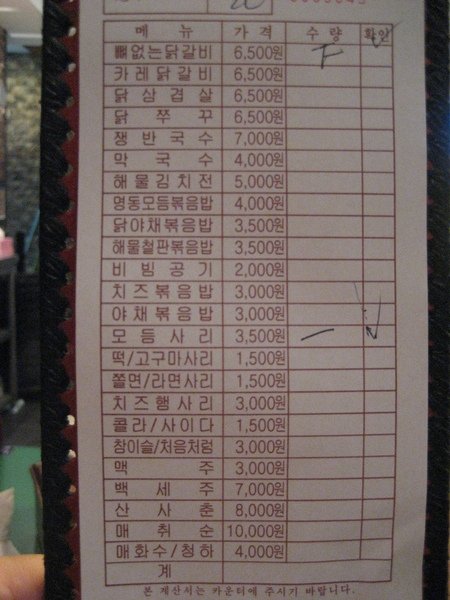 메뉴 가격 수량 확인
뼈없는닭갈비 6,500원
카레닭갈비 6,500원
닭삼겹살 6,500원
닭쭈꾸 6,500원
쟁반국수 7,000원
막국수 4,000원
해물김치전 5,000원
명동모듬볶음밥 4,000원
닭야채볶음밥 3,500원
해물철판볶음밥 3,500원
비빔공기 2,000원
치즈볶음밥 3,000원
야채볶음밥 3,000원
모듬사리 3,500원
떡/고구마사리 1,500원
쫄면/라면사리 1,500원
치즈행사리 3,000원
콜라/사이다 1,500원
참이슬/처음처럼 3,000원
맥주 3,000원
백세주 7,000원
산사춘 8,000원
매취순 10,000원
매화수/청하 4,000원
계
본 계산서는 카운터에 주시기 바랍니다.